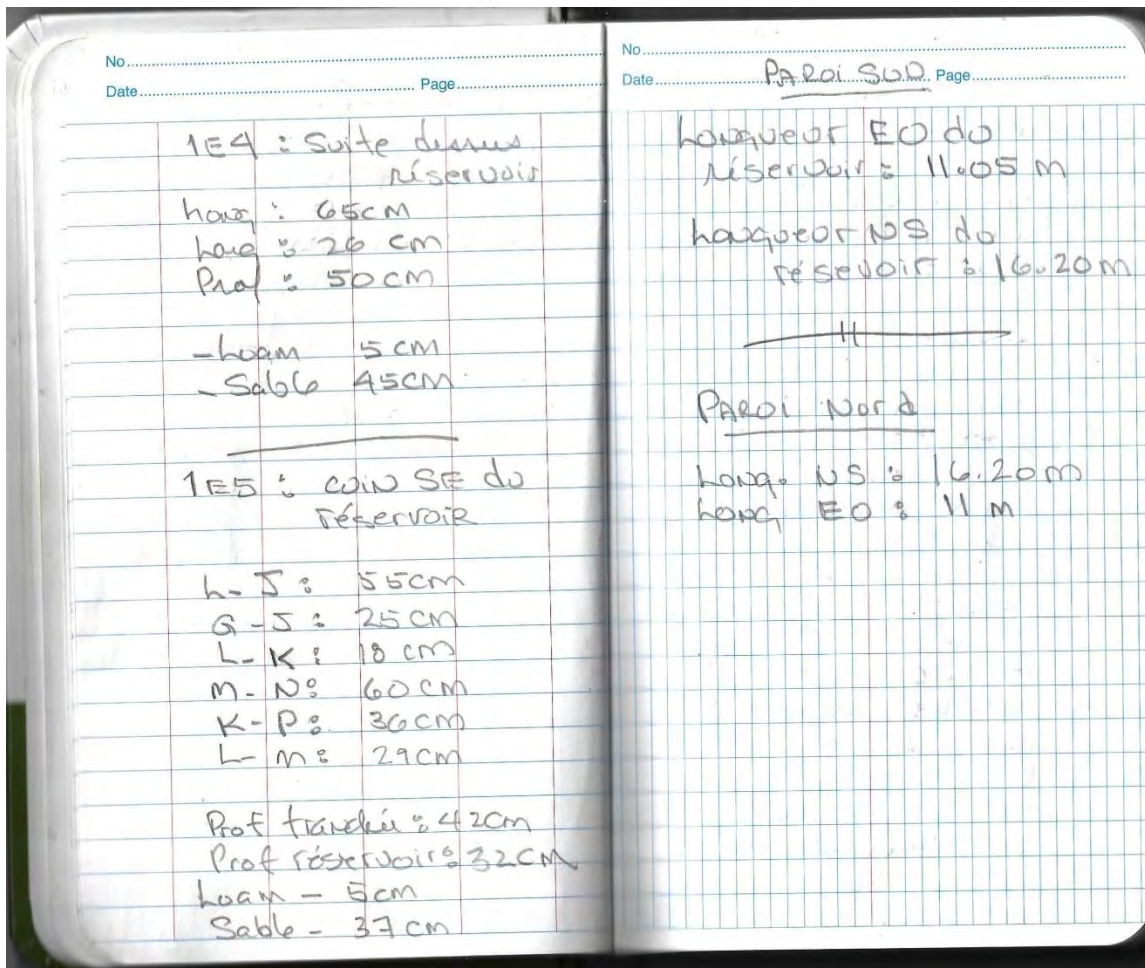 No
Date Page
1E4 : Suite dessus
réservoir
Long : 65cm
Larg : 26 cm
Prof : 50cm
- Loam 5cm
- Sable 45cm
1E5 : coin SE du
réservoir
L-J : 55cm
G-J : 25cm
L-K : 18 cm
M-N : 60 cm
K-P : 36cm
L-M : 29cm
Prof tranchée : 42cm
Prof réservoir : 32cm
Loam - 5cm
Sable - 37 cm
No
Date PAROI SUD Page
Longueur EO du
réservoir : 11.05 m
Longueur NS du
résevoir : 16.20m
PAROI Nord
Long. NS : 16.20m
Long EO : 11 m